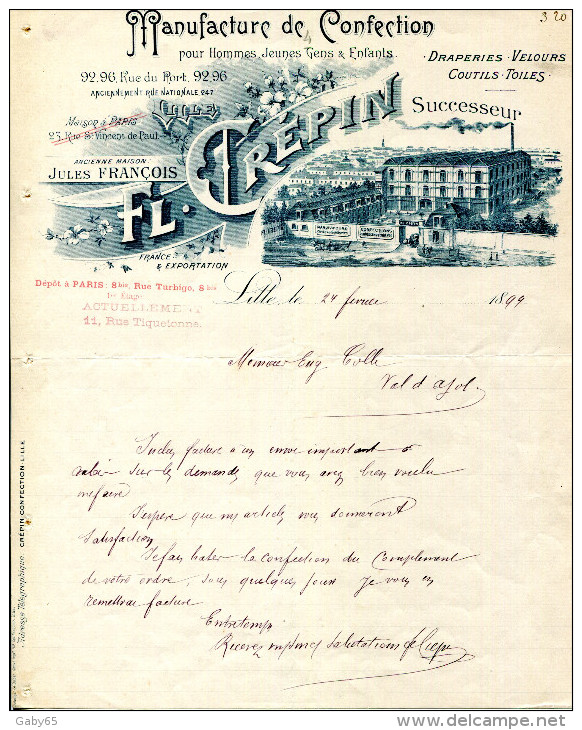 3 20
Manufacture de Confection
pour Hommes, Jeunes Gens & Enfants.
92,96, Rue du Port, 92,96
ANCIENNEMENT RUE NATIONALE 247
LILLE
DRAPERIES · VELOURS
COUTILS · TOILES
Maison à PARIS
23, Rue St Vincent de Paul
ANCIENNE MAISON
JULES FRANÇOIS
FL. CRÉPIN
Successeur
MANUFACTURE
CONFECTIONS
FRANCE
& EXPORTATION
Dépôt à PARIS: 8 bis, Rue Turbigo, 8 bis
1er Étage
ACTUELLEME
11, Rue Tiquetonne.
Lille, le 24 février 1899
Monsieur Eug Colle
Val d'Ajol
Inclus facture a un envoi important à
valoir sur la demande que vous avez bien voulu
me faire
J'espère que mes articles vous donneront
Satisfaction
Je fais hater la confection du Complement
de votre ordre, sous quelques jours je vous en
remettrai facture
Entretemps
Recevez mes sinc Salutations
Adresse Télégraphique: CRÉPIN-CONFECTION-LILLE
Gaby65
www.delcampe.net